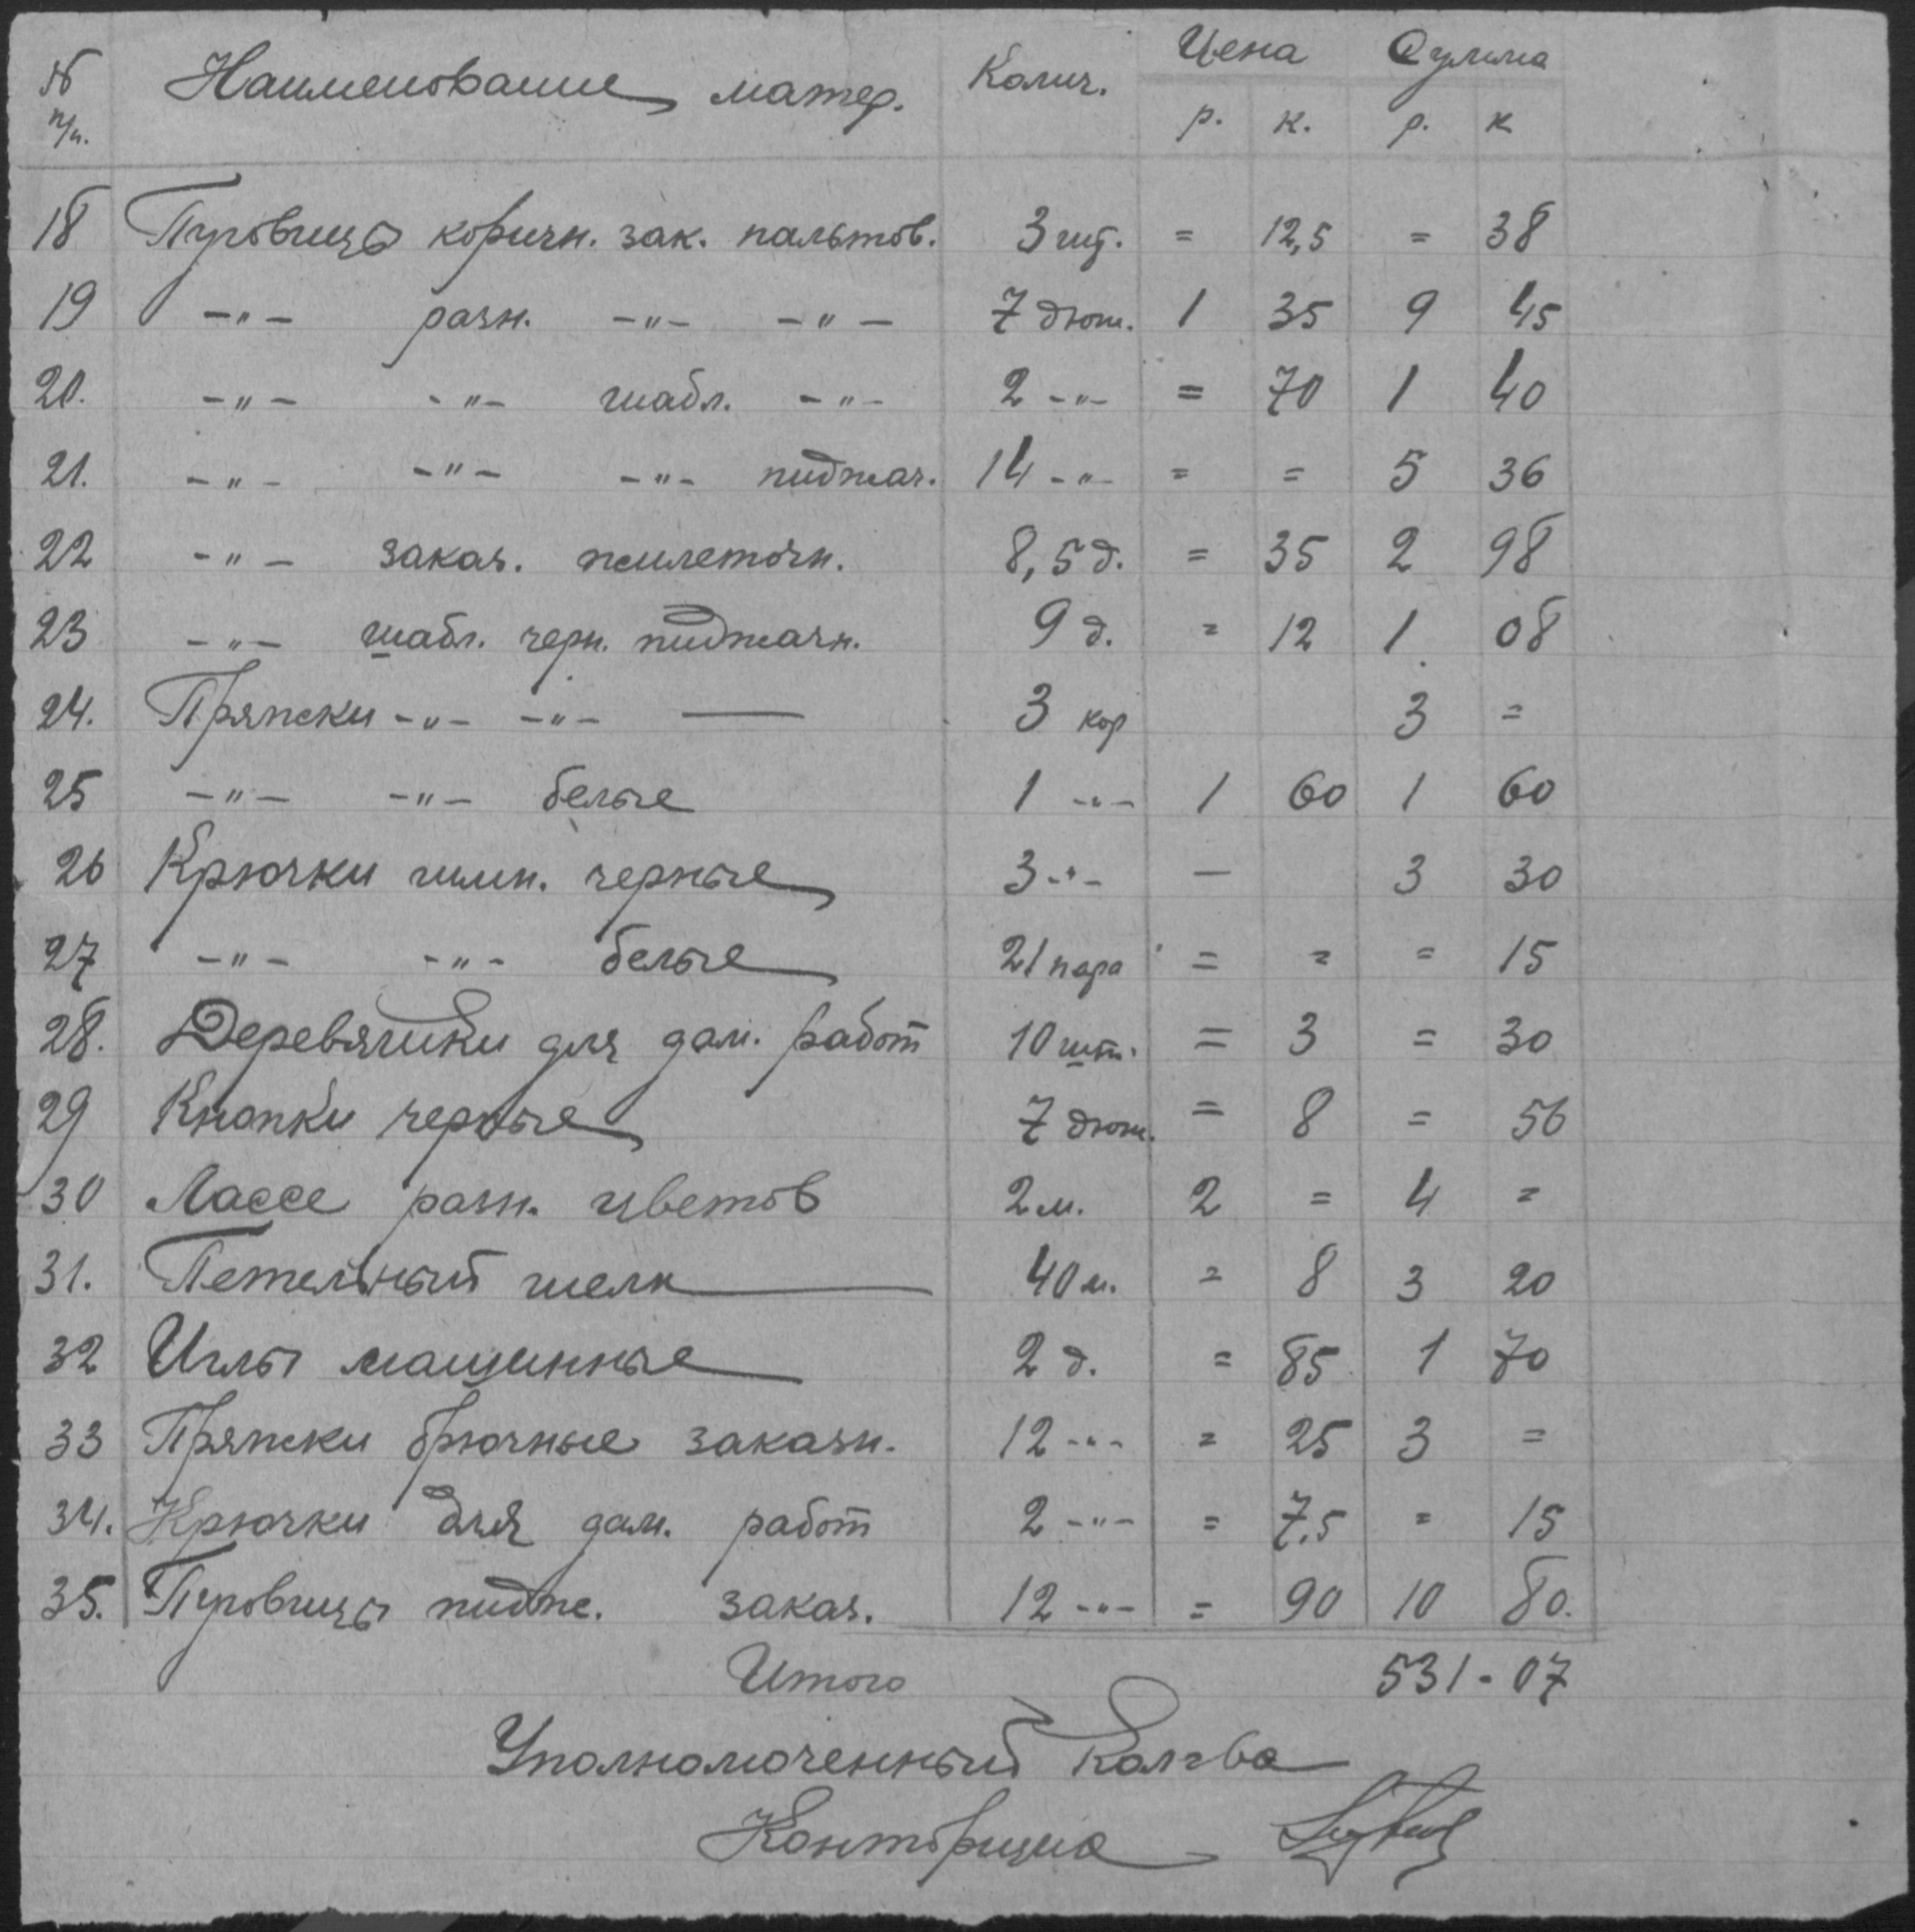 № п/п. Наименование матер. Колич. Цена р. к. Сумма р. к
18 Пуговицы коричн. зак. пальтов. 3 шт. = 12,5 = 38
19 -"- разн. -"- -"- 7 дюж. 1 35 9 45
20. -"- -"- шабл. -"- 2 -"- = 70 1 40
21. -"- -"- -"- пиджач. 14 -"- = = 5 36
22 -"- заказ. жилеточн. 8,5 д. = 35 2 98
23 -"- шабл. черн. пиджачн. 9 д. = 12 1 08
24. Пряжки -"- -"- — 3 кор 3 =
25 -"- -"- белые 1 -"- 1 60 1 60
26 Крючки шин. черные 3 -"- — 3 30
27 -"- -"- белые 21 пара = = = 15
28. Деревяшки для дам. работ 10 шт. = 3 = 30
29 Кнопки черные 7 дюж. = 8 = 56
30 Лассе разн. цветов 2 м. 2 = 4 =
31. Петельный шелк — 40 м. = 8 3 20
32 Иглы машинные 2 д. = 85 1 70
33 Пряжки брючные заказн. 12 -"- = 25 3 =
34. Крючки для дам. работ 2 -"- = 7.5 = 15
35. Пуговицы пидж. заказ. 12 -"- = 90 10 80.
Итого 531-07
Уполномоченный Колгва
Конторщик